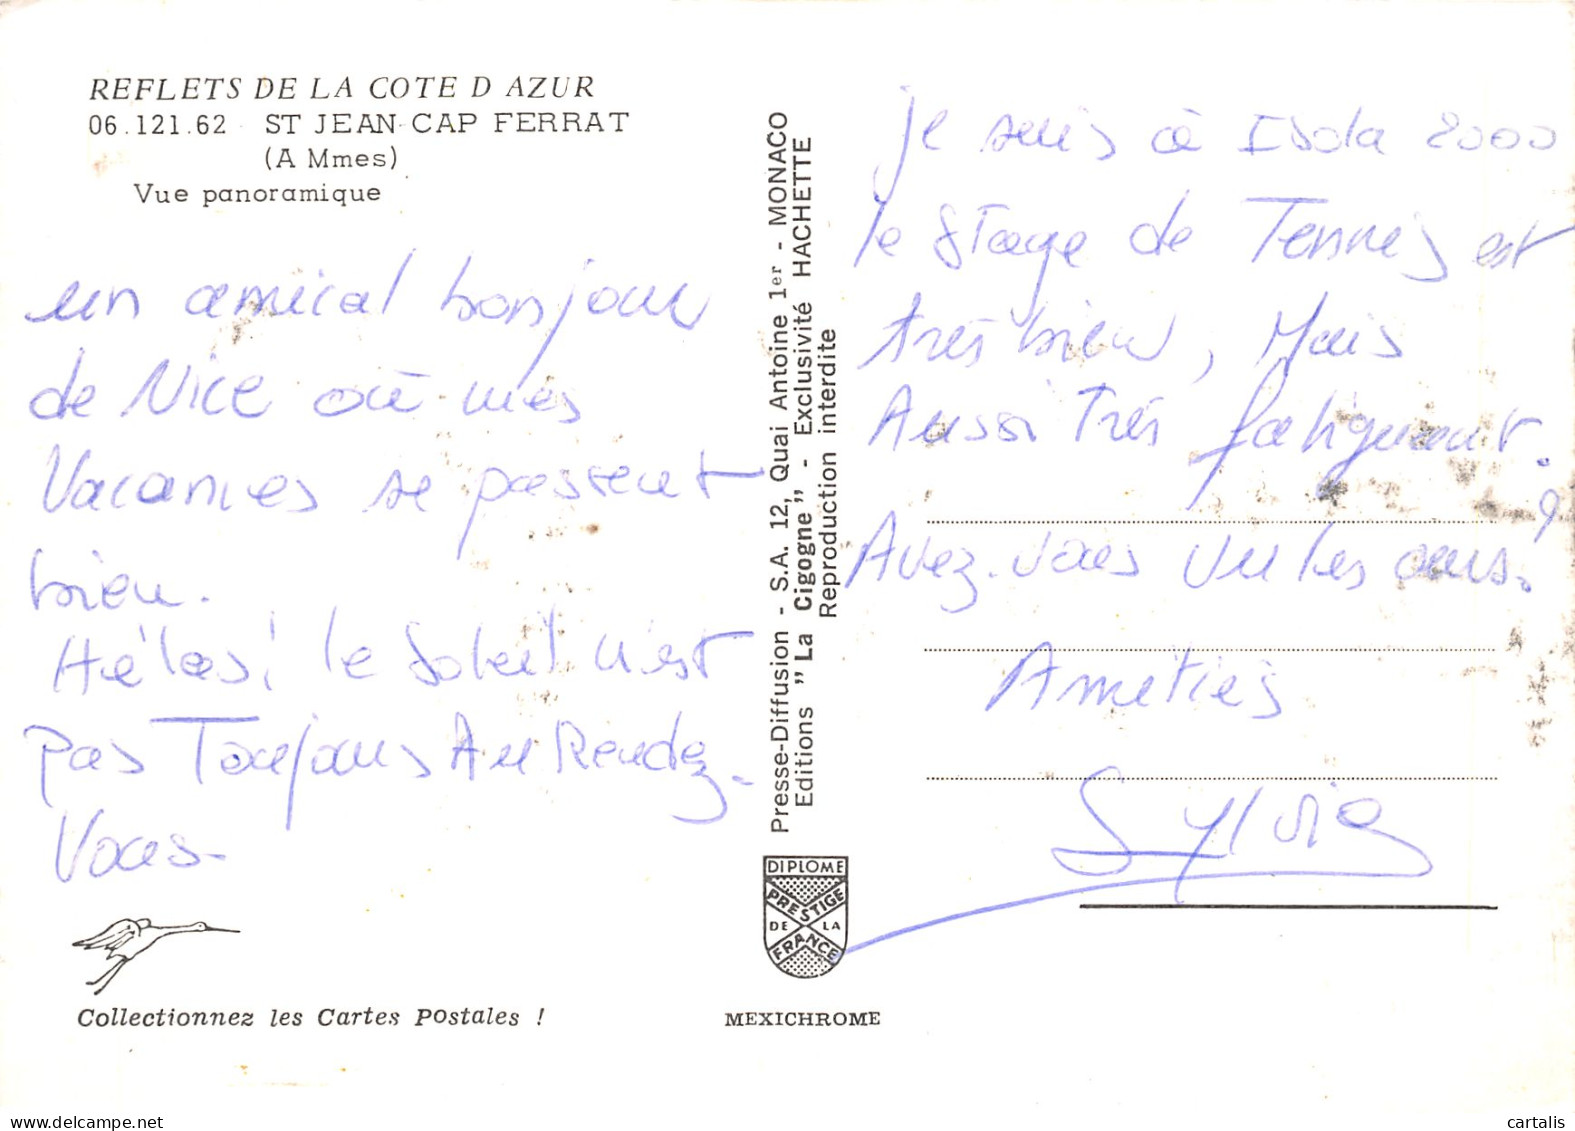 REFLETS DE LA COTE D AZUR
06.121.62 ST JEAN CAP FERRAT
(A Mmes)
Vue panoramique
un amical bonjour
de Nice où mes
Vacances se passent
bien.
Hélas! le Soleil n'est
pas Toujours Au Rendez-
Vous-
Collectionnez les Cartes Postales !
Presse-Diffusion - S.A. 12, Quai Antoine 1er - MONACO
Editions "La Cigogne" - Exclusivité HACHETTE
Reproduction interdite
DIPLOME
PRESTIGE
DE LA
FRANCE
MEXICHROME
je suis à Isola 2000
le stage de Tennis est
très bien, Mais
Aussi Très fatiguant.
Avez-vous vu les ours?
Amitiés
Sylvie
www.delcampe.net
cartalis